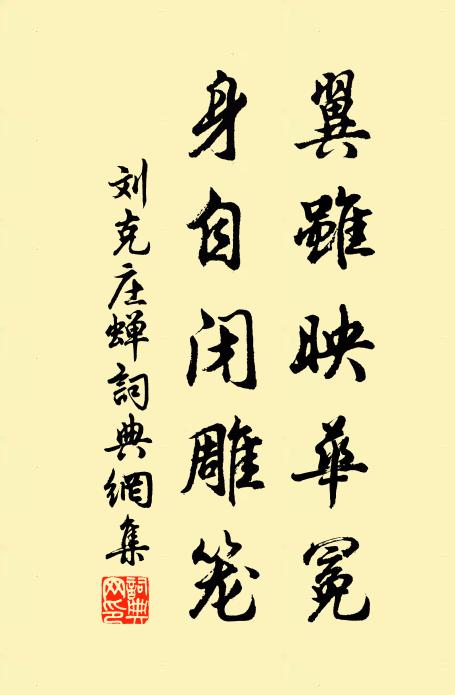 翼雖映華冕
身自闭雕笼
刘克庄蝉詞典網集